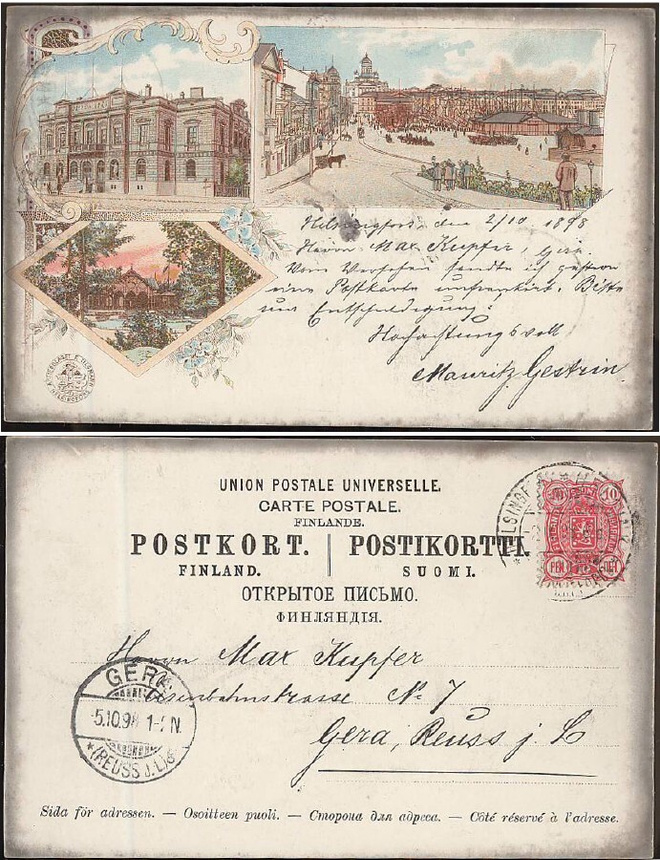 Helsingfors den 2/10 1898
Herrn Max Kupfer, Gera
Vom Versehen sandte ich gestern
eine Postkarte unfrankirt. Bitte
um Entschuldigung!
Hochachtungsvoll
Mauritz Gestrin.
UNION POSTALE UNIVERSELLE.
CARTE POSTALE.
FINLANDE.
POSTKORT. | POSTIKORTTI.
FINLAND. SUOMI.
ОТКРЫТОЕ ПИСЬМО.
ФИНЛЯНДІЯ.
10 10
PEN
Herrn Max Kupfer
Eisenbahnstrasse No 7
Gera, Reuss j. L
GERA
5.10.98 1-2 N.
*(REUSS J.L.)
Sida för adressen. — Osoitteen puoli. — Сторона для адреса. — Côté réservé à l'adresse.